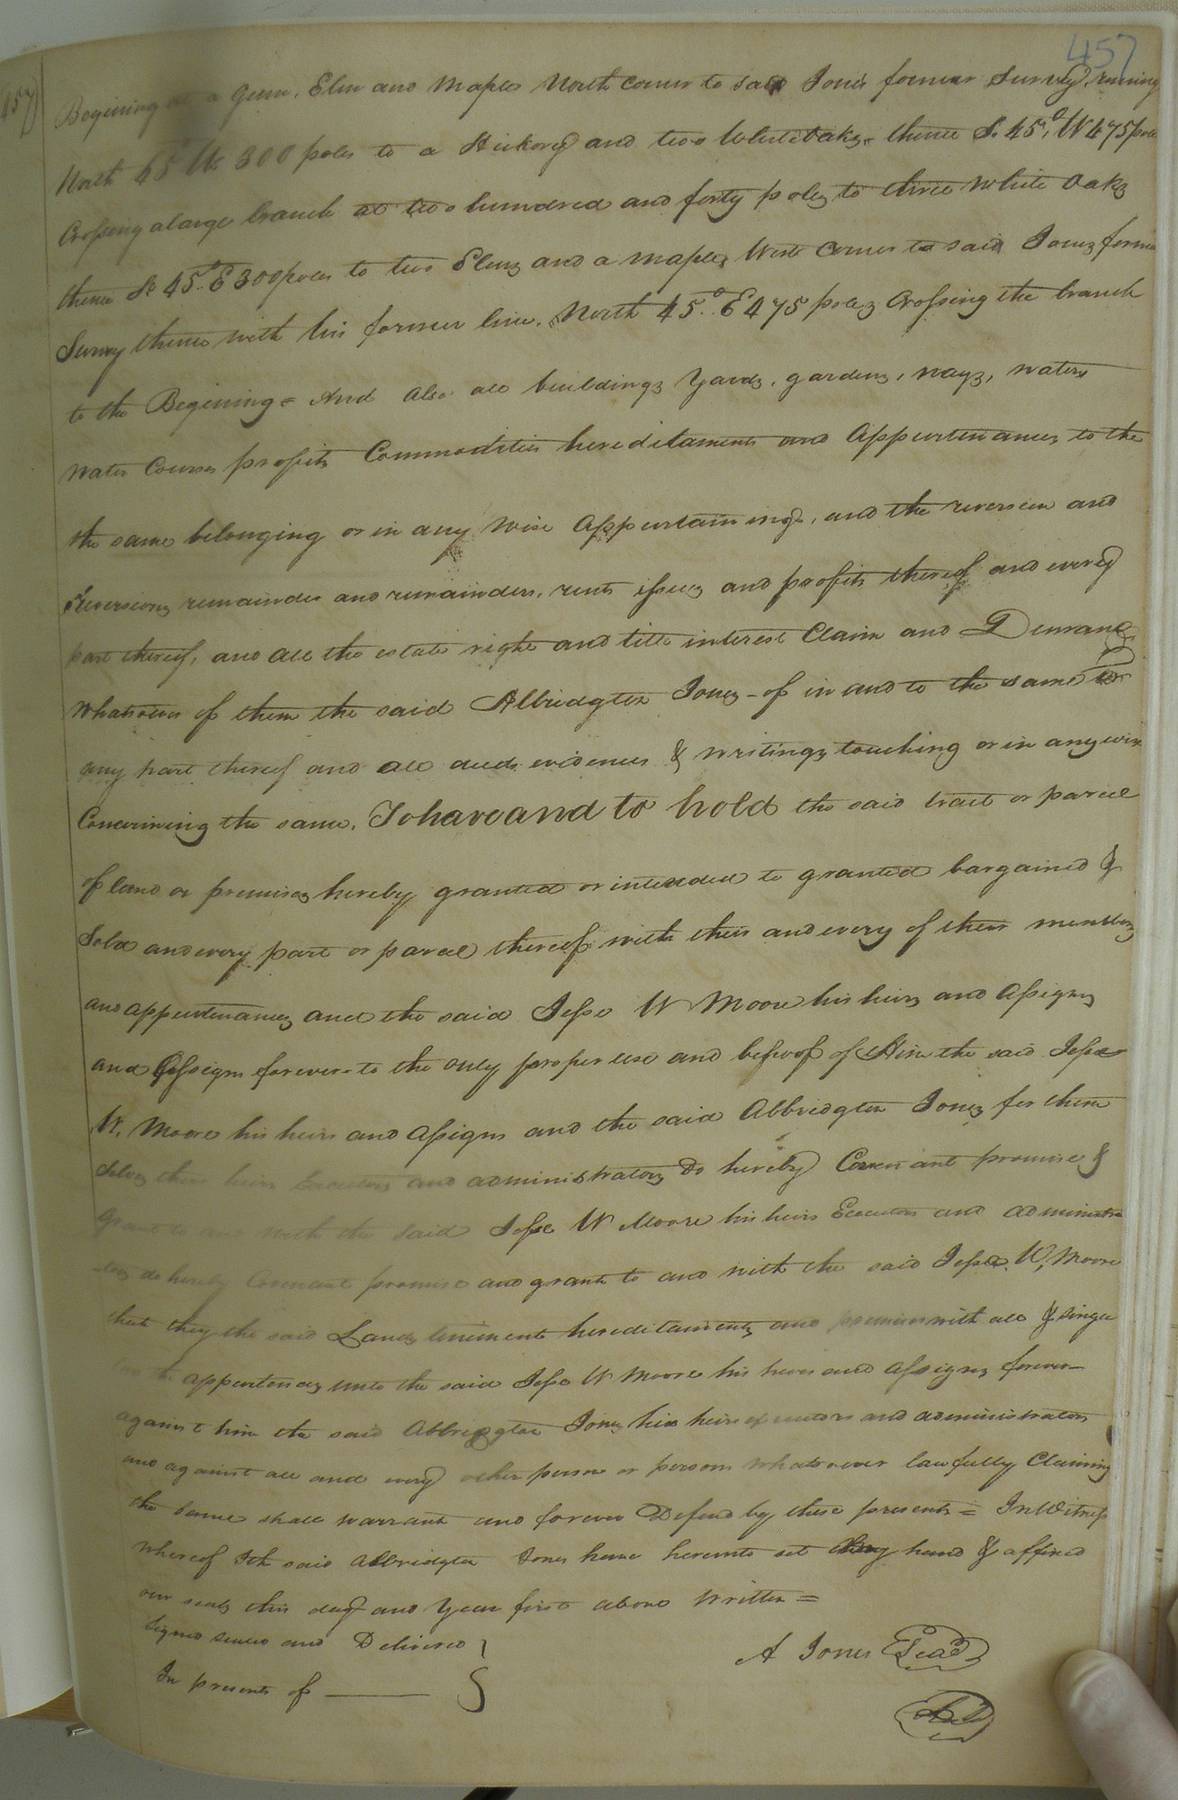 457
457)
Begining at a Gum, Elm and Maple North corner to said Jones former Survey, runing
North 45° W. 300 poles to a Hickory and two Whiteoaks, thence S. 45°. W 475 poles
Crossing a large branch at two hundred and forty poles to three White Oaks
thence S. 45°. E 300 poles to two Elms and a maple, West Corner to said Jones former
Survey thence with his former line, North 45°. E 475 poles Crossing the branch
to the Begining = And Also all buildings Yards, gardens, ways, waters
Water Courses profits Commodities hereditaments and Appurtenances to the
the same belonging or in any Wise Appurtaining, and the reversion and
Reversions remainder and remainders, rents issues and profits thereof and every
part thereof, and all the estate right and title interest Claim and Demand
Whatsoever of them the said Albridgton Jones - of in and to the same or
any part thereof and all deeds evidences & writings touching or in any wise
Concerining the same, To have and to hold the said tract or parcel
of land or premises hereby granted or intended to granted bargained &
Sold and every part or parcel thereof with their and every of their members
and appurtenances and the said Jesse W Moore his heirs and Assigns
and Assigns forever - to the only proper use and behoof of Him the said Jesse
W. Moore his heirs and Assigns and the said Abbridgton Jones for them
selves their heirs Executors and administrators do hereby Covenant promise &
Grant to and with the said Jesse W Moore his heirs Executors and administra
tors do hereby Covenant promise and grant to and with the said Jesse. W, Moore
that they the said Lands teniments hereditaments and premises with all & singu
lar the appurtences unto the said Jesse W Moore his heirs and Assigns forever -
against him the said Abbridgton Jones his heirs executors and administrators
and against all and every other person or persons whatsoever lawfully Claiming
the Same shall warrant and forever Defend by these presents = In Witness
Whereof I th said Abbridgton Jones have hereunto set hand & affixed
our seals this day and Year first above Written =
Signed sealed and Delivered }
A Jones Seal
In presents of ———
Seal